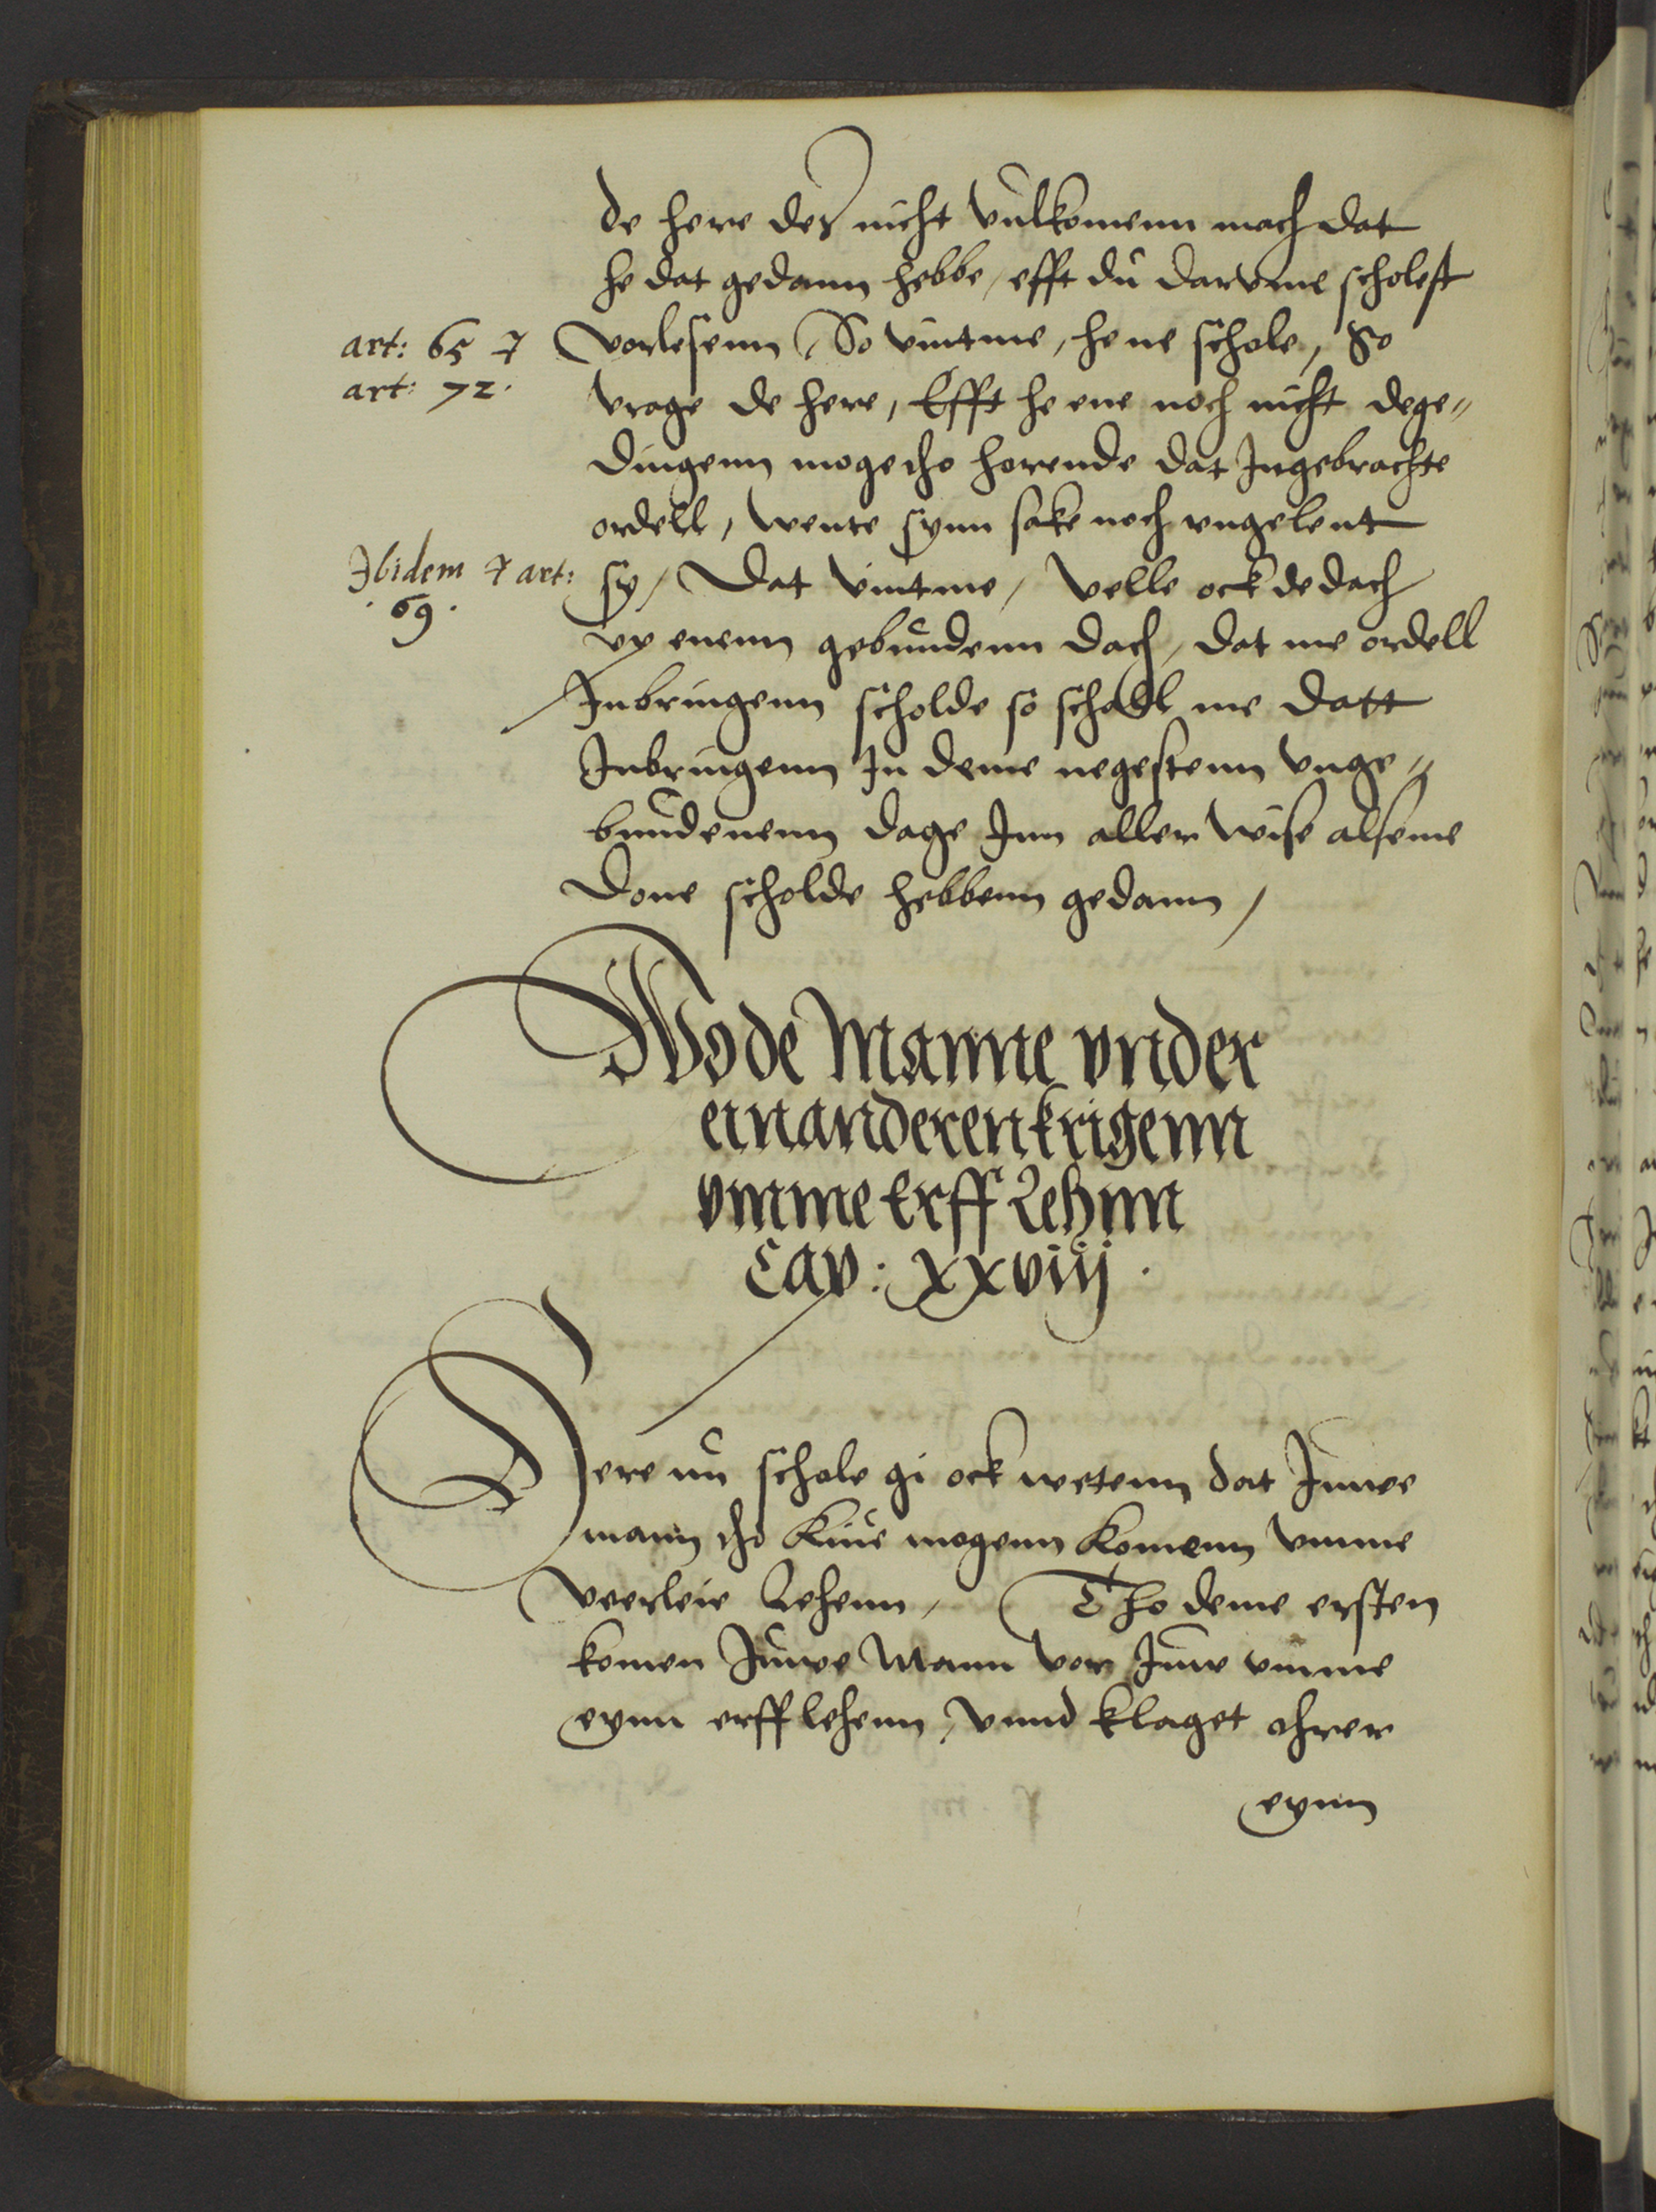 de here des nicht vulkomenn mach dat
he dat gedann hebbe, efft du darvme scholest
art: 65 &
vorlesenn, So vintme, he ne schole, So
art: 72.
vrage de here, Efft he ene noch nicht dege„
dingenn moge tho horende dat Ingebrachte
ordell, wente synn sake noch vngelent
Ibidem & art:
69.
sy, Dat vintme, velle ock de dach
vp enenn gebundenn dach, dat me ordell
Inbringenn scholde so schall me datt
Inbringenn In deme negestenn vnge„
bundenenn dage Inn aller wise alseme
done scholde hebbenn gedann,
Wo de Manne vnder
einanderen krigenn
vmme Erff Lehnn
Cap: xxviij.
Here nu schole gi ock wetenn dat Juwe
mann tho Kiue mogenn komenn vmme
veerleie Lehenn, Tho deme ersten
komen Juwe Mann vor Juw vmme
eynn erfflehenn, vnnd klaget ehrer
eynn